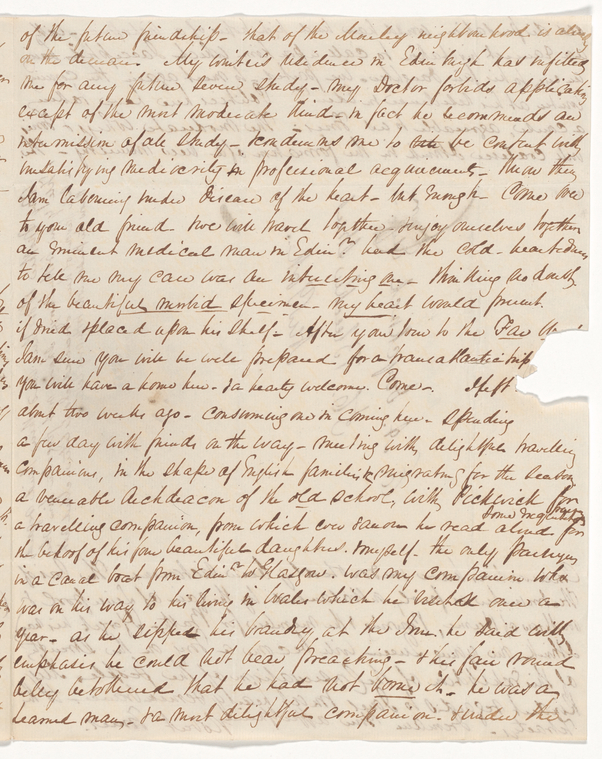 of the future friendship - that of the Morley neighbourhood is along
on the demean. My winters residence in Edinburgh has unfitted
me for any future severe study - my Doctor forbids application
except of the most moderate kind - in fact he recommends an
intermission of all study - & condemns me to be content with
unsatisfying mediocrity in professional acquirement - Know then
I am labouring under Disease of the heart - but Enough - Come over
to your old friend & we will travel together - & enjoy ourselves together
an Eminent Medical man in Edinr had the cold - heartedness
to tell me my case was an interesting one - thinking no doubt
of the beautiful morbid specimen my heart would present
if dried & placed upon his shelf - After your tour to the Far
I am sure you will be well prepared for a transatlantic trip
you will have a home here - & a hearty welcome. Come - I left
about two weeks ago - consuming one in coming here - Spending
a few day with friends on the way - meeting with delightful travelling
companions, in the shape of English families migrating for the season
a venerable Archdeacon of the old school, with Pickwick for
a travelling companion, from which ever & anon he read aloud some for
the behoof of his four beautiful daughters. & myself - the only passengers
in a Canal boat from Edinr to Glasgow. was my companion who
was on his way to his living in Wales which he visited once a
year - as he sipped his brandy at the Inn, he said with
emphasis he could not bear preaching - & his fair round
belly betokened that he had not borne it - he was a
learned man - & a most delightful companion. & under the